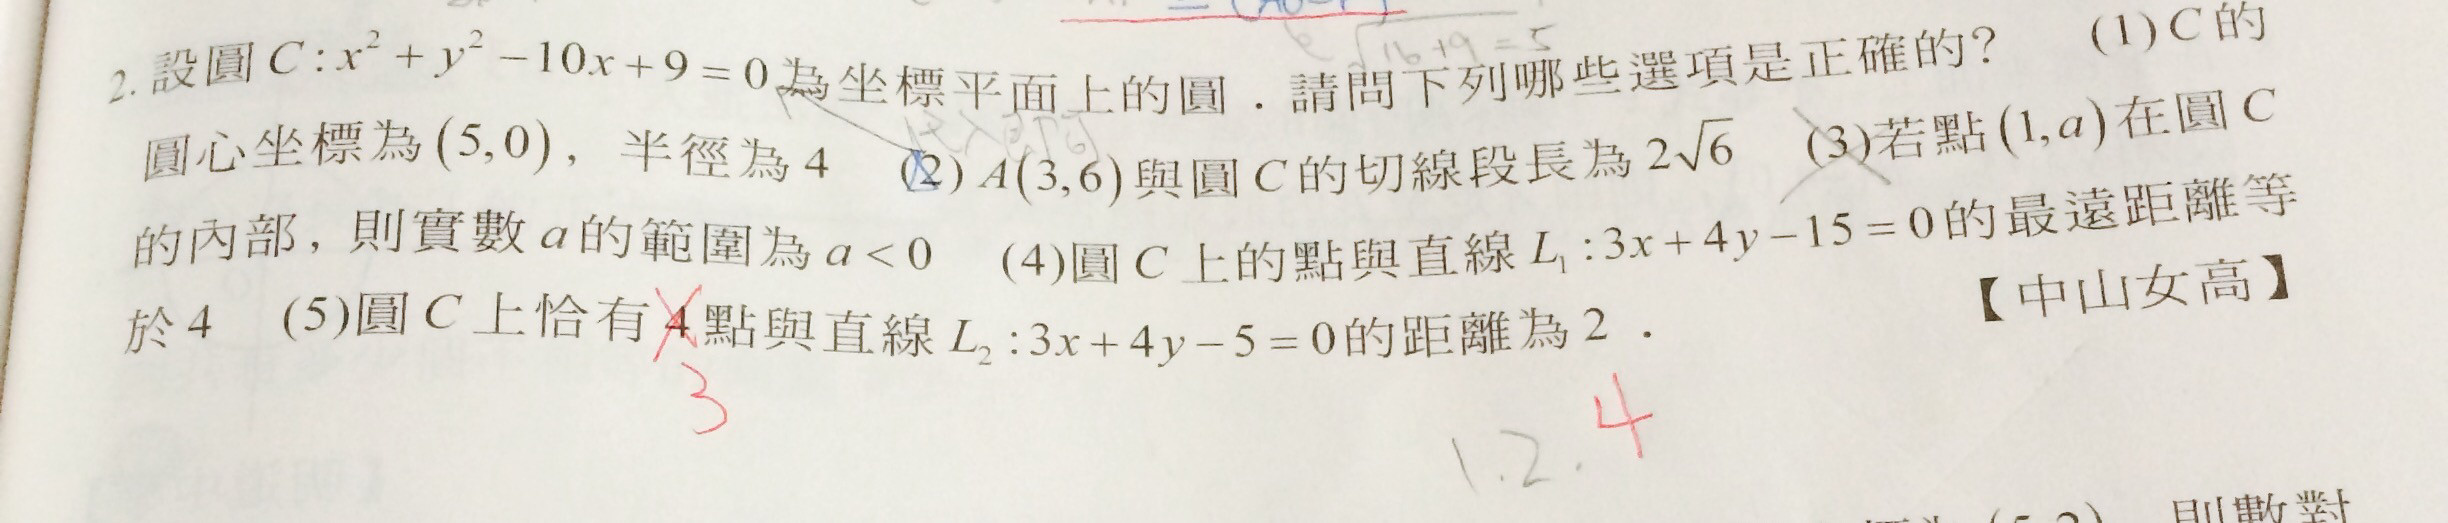 2. 設圓 C : x² + y² − 10x + 9 = 0 為坐標平面上的圓．請問下列哪些選項是正確的？ (1) C 的
圓心坐標為 (5,0)，半徑為 4 (2) A(3,6) 與圓 C 的切線段長為 2√6 (3)若點 (1,a) 在圓 C
的內部，則實數 a 的範圍為 a < 0 (4)圓 C 上的點與直線 L₁ : 3x + 4y − 15 = 0 的最遠距離等
於 4 (5)圓 C 上恰有 4 點與直線 L₂ : 3x + 4y − 5 = 0 的距離為 2 ．
【中山女高】
3
1.2. 4